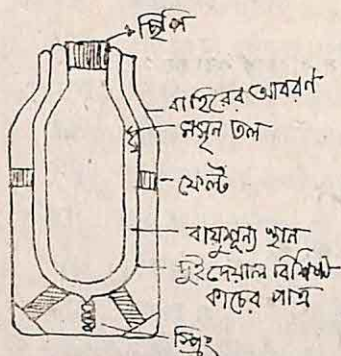 ছিপি
বাহিরের আবরণ
মসৃন তল
ফেল্ট
বায়ুশূন্য স্থান
দুইদেয়াল বিশিষ্ট
কাচের পাত্র
স্প্রিং